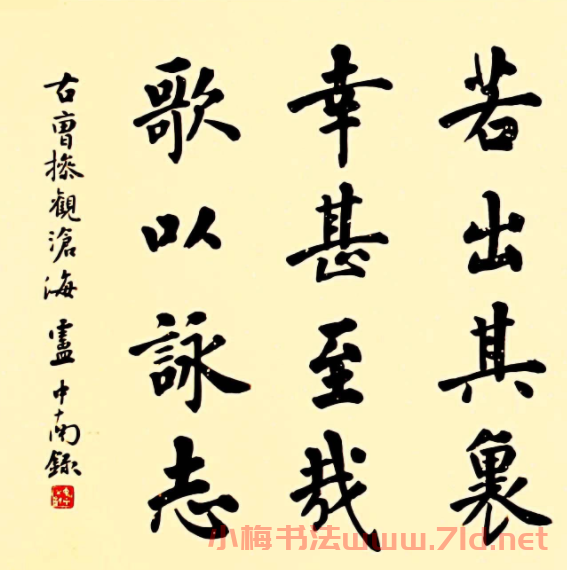 若出其裏
幸甚至哉
歌以詠志
古曹操觀滄海 盧中南錄
小梅书法www.7ld.net